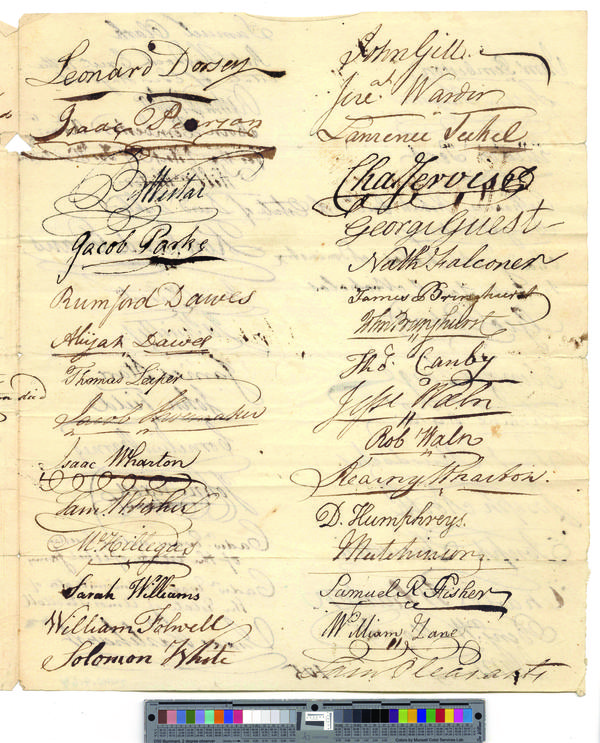 Leonard Dorsey
Isaac Pearson
Wistar
Jacob Parke
Rumford Dawes
Abijah Dawes
Thomas Leiper
Jacob Shoemaker
Isaac Wharton
Sam
M. Hillegas
Sarah Williams
William Folwell
Solomon White
John Gill
Jere.ah Warder
Lawrence Seckel
Cha Jervis
George Guest
Nath Falconer
James Bringhurst
Wm Bringhurst
Tho.s Canby
Jesse Waln
Rob Waln
Kearny Wharton
D. Humphreys.
Hutchinson
Samuel R. Fisher
William Lane
Sam Pleasants